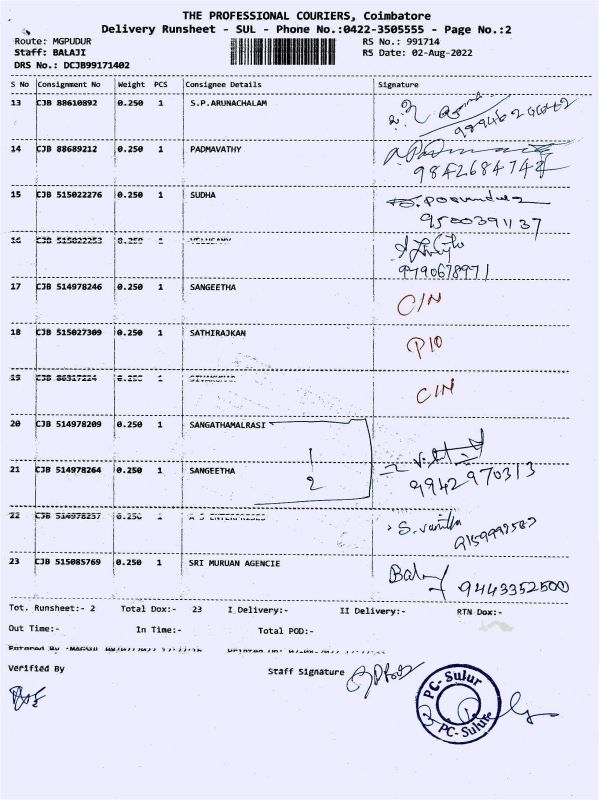 THE PROFESSIONAL COURIERS, Coimbatore
Delivery Runsheet - SUL - Phone No.:0422-3505555 - Page No.:2
Route: MGPUDUR RS No.: 991714
Staff: BALAJI RS Date: 02-Aug-2022
DRS No.: DCJB99171402
S No Consignment No Weight PCS Consignee Details Signature
13 CJB 88610892 0.250 1 S.P.ARUNACHALAM
14 CJB 88689212 0.250 1 PADMAVATHY
9842684742
15 CJB 515022276 0.250 1 SUDHA
9500391137
16 CJB 515022253 0.250 1 VELUSAMY
9790678971
17 CJB 514978246 0.250 1 SANGEETHA C/N
18 CJB 515027309 0.250 1 SATHIRAJKAN P10
19 CJB 86317224 0.250 1 SIVAKUMAR C/N
20 CJB 514978209 0.250 1 SANGATHAMALRASI
1
21 CJB 514978264 0.250 1 SANGEETHA
2 9942970313
22 CJB 514978257 0.250 1 A S ENTERPRISES S. vanitha
23 CJB 515085769 0.250 1 SRI MURUAN AGENCIE Balaji 9443352500
Tot. Runsheet:- 2 Total Dox:- 23 I Delivery:- II Delivery:- RTN Dox:-
Out Time:- In Time:- Total POD:-
Verified By Staff Signature
PC- Sulur
PC- Sulur